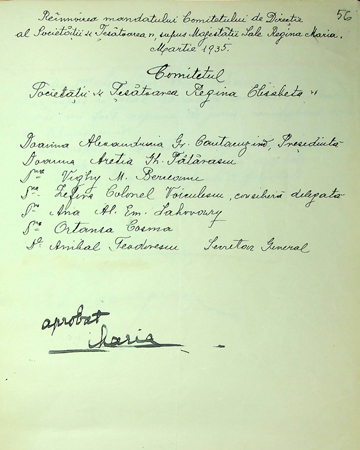 56
Reînnoirea mandatului Comitetului de Direcție
al Societății „Țesătoarea", supus Majestății Sale Regina Maria,
Martie 1935.
Comitetul
Societății „Țesătoarea Regina Elisabeta"
Doamna Alexandrina Gr. Cantacuzino, Președintă
Doamna Aretia Gh. Tătărascu
D-na M. Bereianu
D-na Zefira Colonel Voiculescu, consilieră delegată
D-na Ana Al. Em. Lahovary
D-na Ortansa Cosma
Dl. Anibal Teodorescu Secretar General
aprobat
Maria